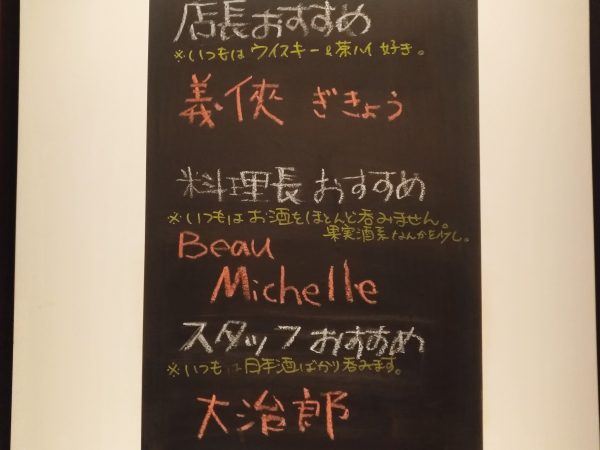 店長おすすめ
※いつもは ウイスキー & 茶ハイ 好き。
義侠 ぎきょう
料理長 おすすめ
※いつもは お酒をほとんど呑みません。
果実酒系なんかを少し。
Beau
Michelle
スタッフ おすすめ
※いつもは 日本酒ばかり呑みます。
大治郎